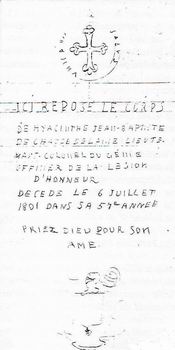 ICI REPOSE LE CORPS
DE HYACINTHE JEAN-BAPTISTE
DE
LIEUTE-
NANT-COLONEL DU GÉNIE
OFFICIER DE LA LEGION
D'HONNEUR
DECEDE LE 6 JUILLET
DANS SA 57e ANNEE
PRIEZ DIEU POUR SON
AME.